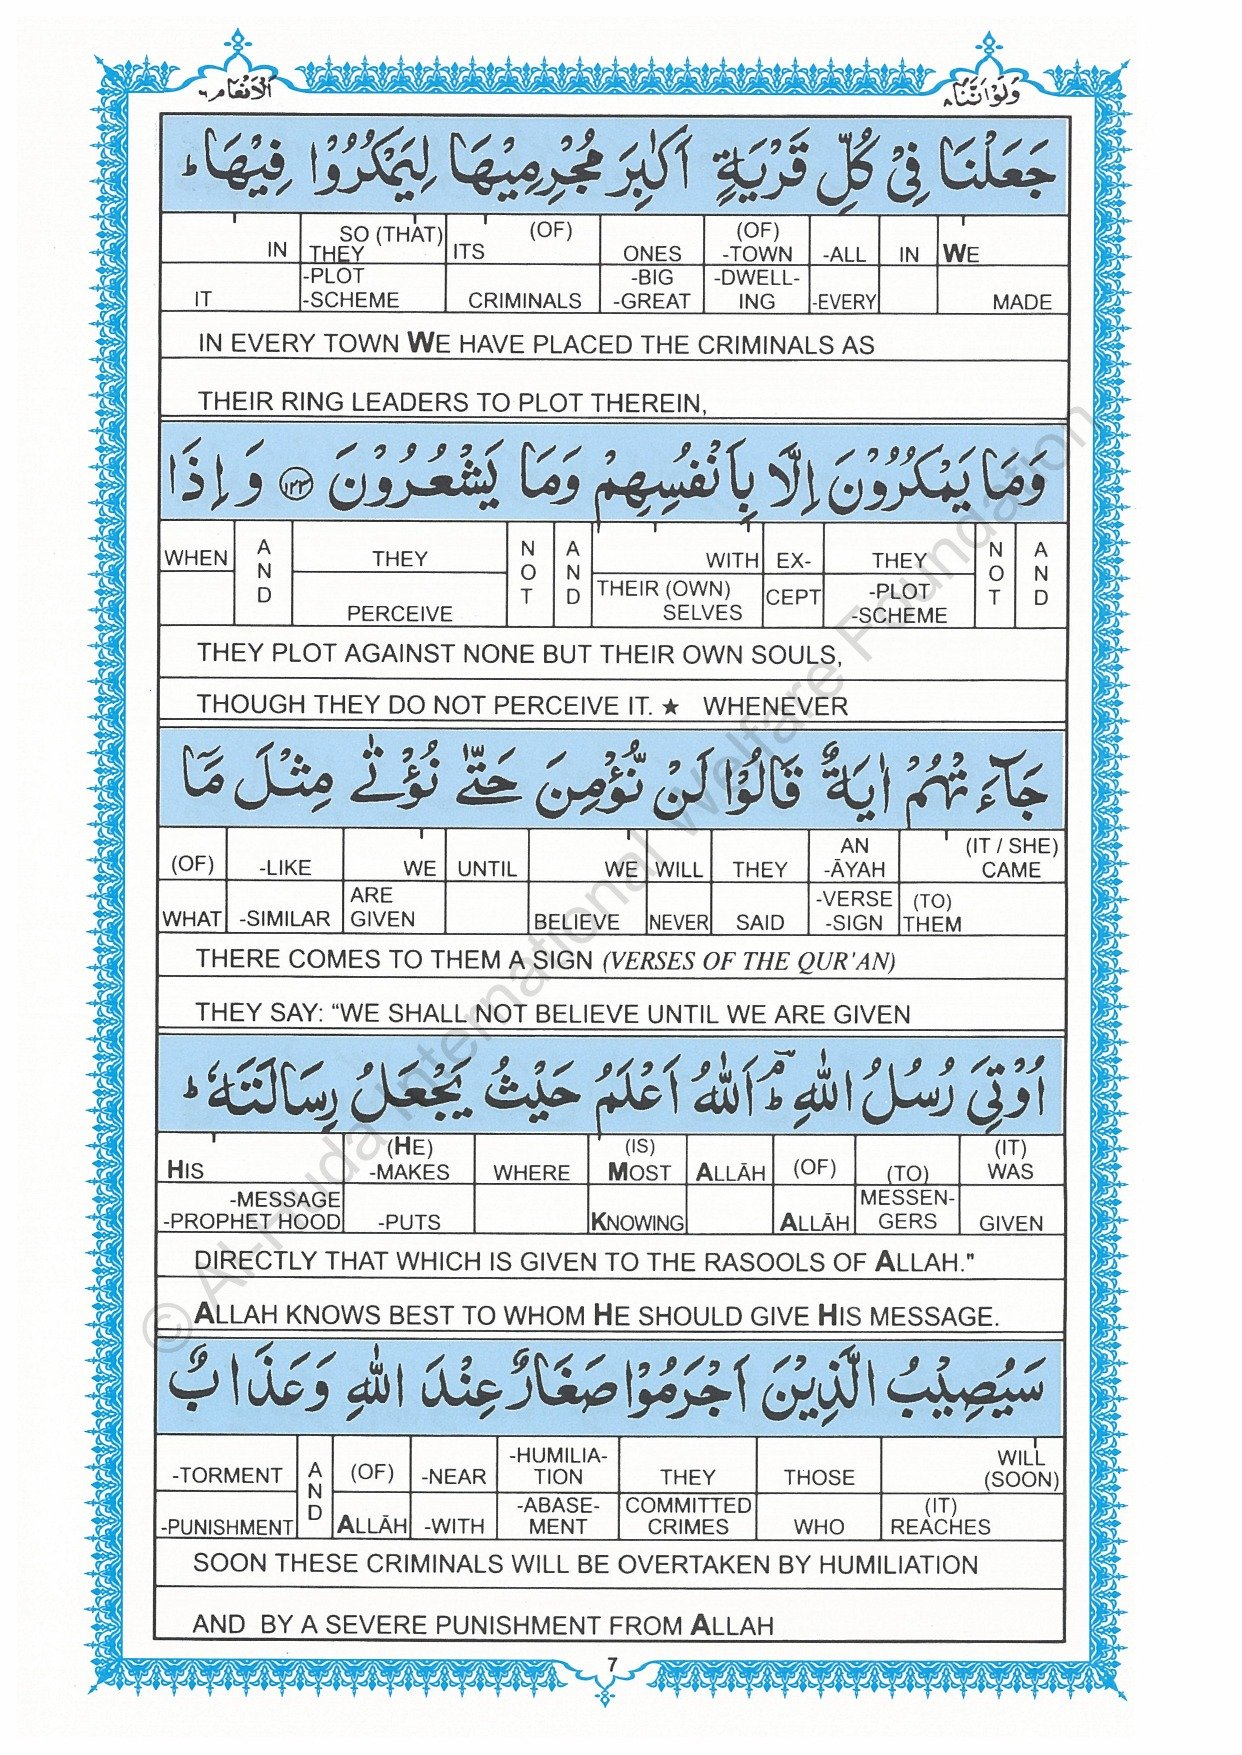 وَلَوْ اَنَّنَا ٨
اَلْاَنْعَام ٦
جَعَلْنَا فِيْ كُلِّ قَرْيَةٍ اَكٰبِرَ مُجْرِمِيْهَا لِيَمْكُرُوْا فِيْهَا ؕ
IN SO (THAT) THEY ITS (OF) ONES (OF) -TOWN -ALL IN WE
IT -PLOT -SCHEME CRIMINALS -BIG -GREAT -DWELL-ING -EVERY MADE
IN EVERY TOWN WE HAVE PLACED THE CRIMINALS AS
THEIR RING LEADERS TO PLOT THEREIN,
وَمَا يَمْكُرُوْنَ اِلَّا بِاَنْفُسِهِمْ وَمَا يَشْعُرُوْنَ ١٢٣ وَ اِذَا
WHEN AND THEY NOT AND WITH EX- THEY NOT AND
PERCEIVE THEIR (OWN) SELVES CEPT -PLOT -SCHEME
THEY PLOT AGAINST NONE BUT THEIR OWN SOULS,
THOUGH THEY DO NOT PERCEIVE IT. ★ WHENEVER
جَآءَ تْهُمْ اٰيَةٌ قَالُوْا لَنْ نُّؤْمِنَ حَتّٰى نُؤْتٰى مِثْلَ مَآ
(OF) -LIKE WE UNTIL WE WILL THEY AN -ĀYAH (IT / SHE) CAME
WHAT -SIMILAR ARE GIVEN BELIEVE NEVER SAID -VERSE -SIGN (TO) THEM
THERE COMES TO THEM A SIGN (VERSES OF THE QUR'AN)
THEY SAY: “WE SHALL NOT BELIEVE UNTIL WE ARE GIVEN
اُوْتِيَ رُسُلُ اللّٰهِ ؕ اَللّٰهُ اَعْلَمُ حَيْثُ يَجْعَلُ رِسَالَتَهٗ ؕ
HIS (HE) -MAKES WHERE (IS) MOST ALLĀH (OF) (TO) (IT) WAS
-MESSAGE -PROPHET HOOD -PUTS KNOWING ALLĀH MESSEN-GERS GIVEN
DIRECTLY THAT WHICH IS GIVEN TO THE RASOOLS OF ALLAH."
ALLAH KNOWS BEST TO WHOM HE SHOULD GIVE HIS MESSAGE.
سَيُصِيْبُ الَّذِيْنَ اَجْرَمُوْا صَغَارٌ عِنْدَ اللّٰهِ وَ عَذَابٌ
-TORMENT AND (OF) -NEAR -HUMILIA-TION THEY THOSE WILL (SOON)
-PUNISHMENT ALLĀH -WITH -ABASE-MENT COMMITTED CRIMES WHO (IT) REACHES
SOON THESE CRIMINALS WILL BE OVERTAKEN BY HUMILIATION
AND BY A SEVERE PUNISHMENT FROM ALLAH
7
© Al-Huda International Welfare Foundation